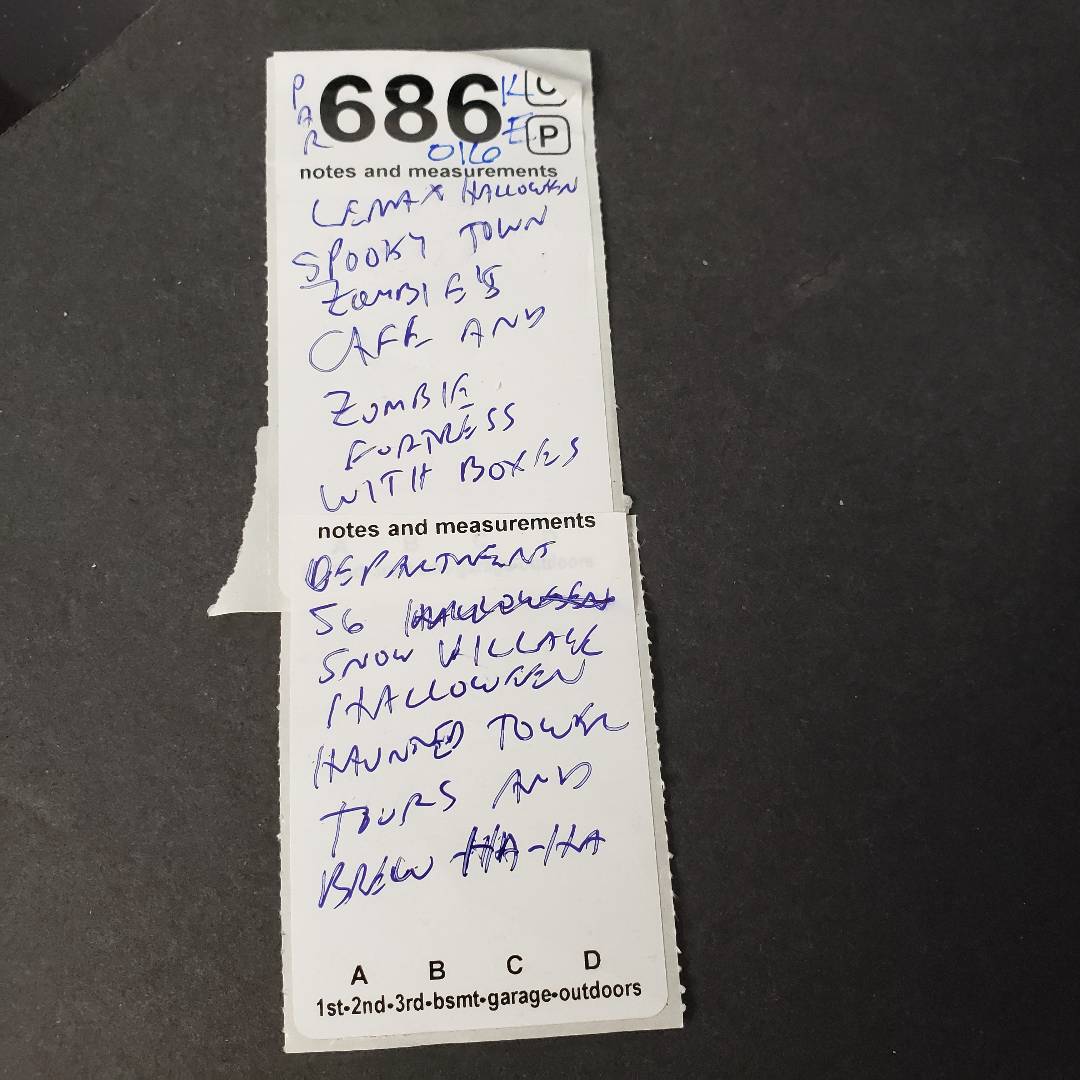 PAR 686 KE
016 P
notes and measurements
LEMAX HALLOWEEN
SPOOKY TOWN
ZOMBIE'S
CAFE AND
ZOMBIE
FORTRESS
WITH BOXES
notes and measurements
DEPARTMENT
56 HALLOWEEN
SNOW VILLAGE
HALLOWEEN
HAUNTED TOWER
TOURS AND
BREW-HA-HA
A B C D
1st•2nd•3rd•bsmt•garage•outdoors